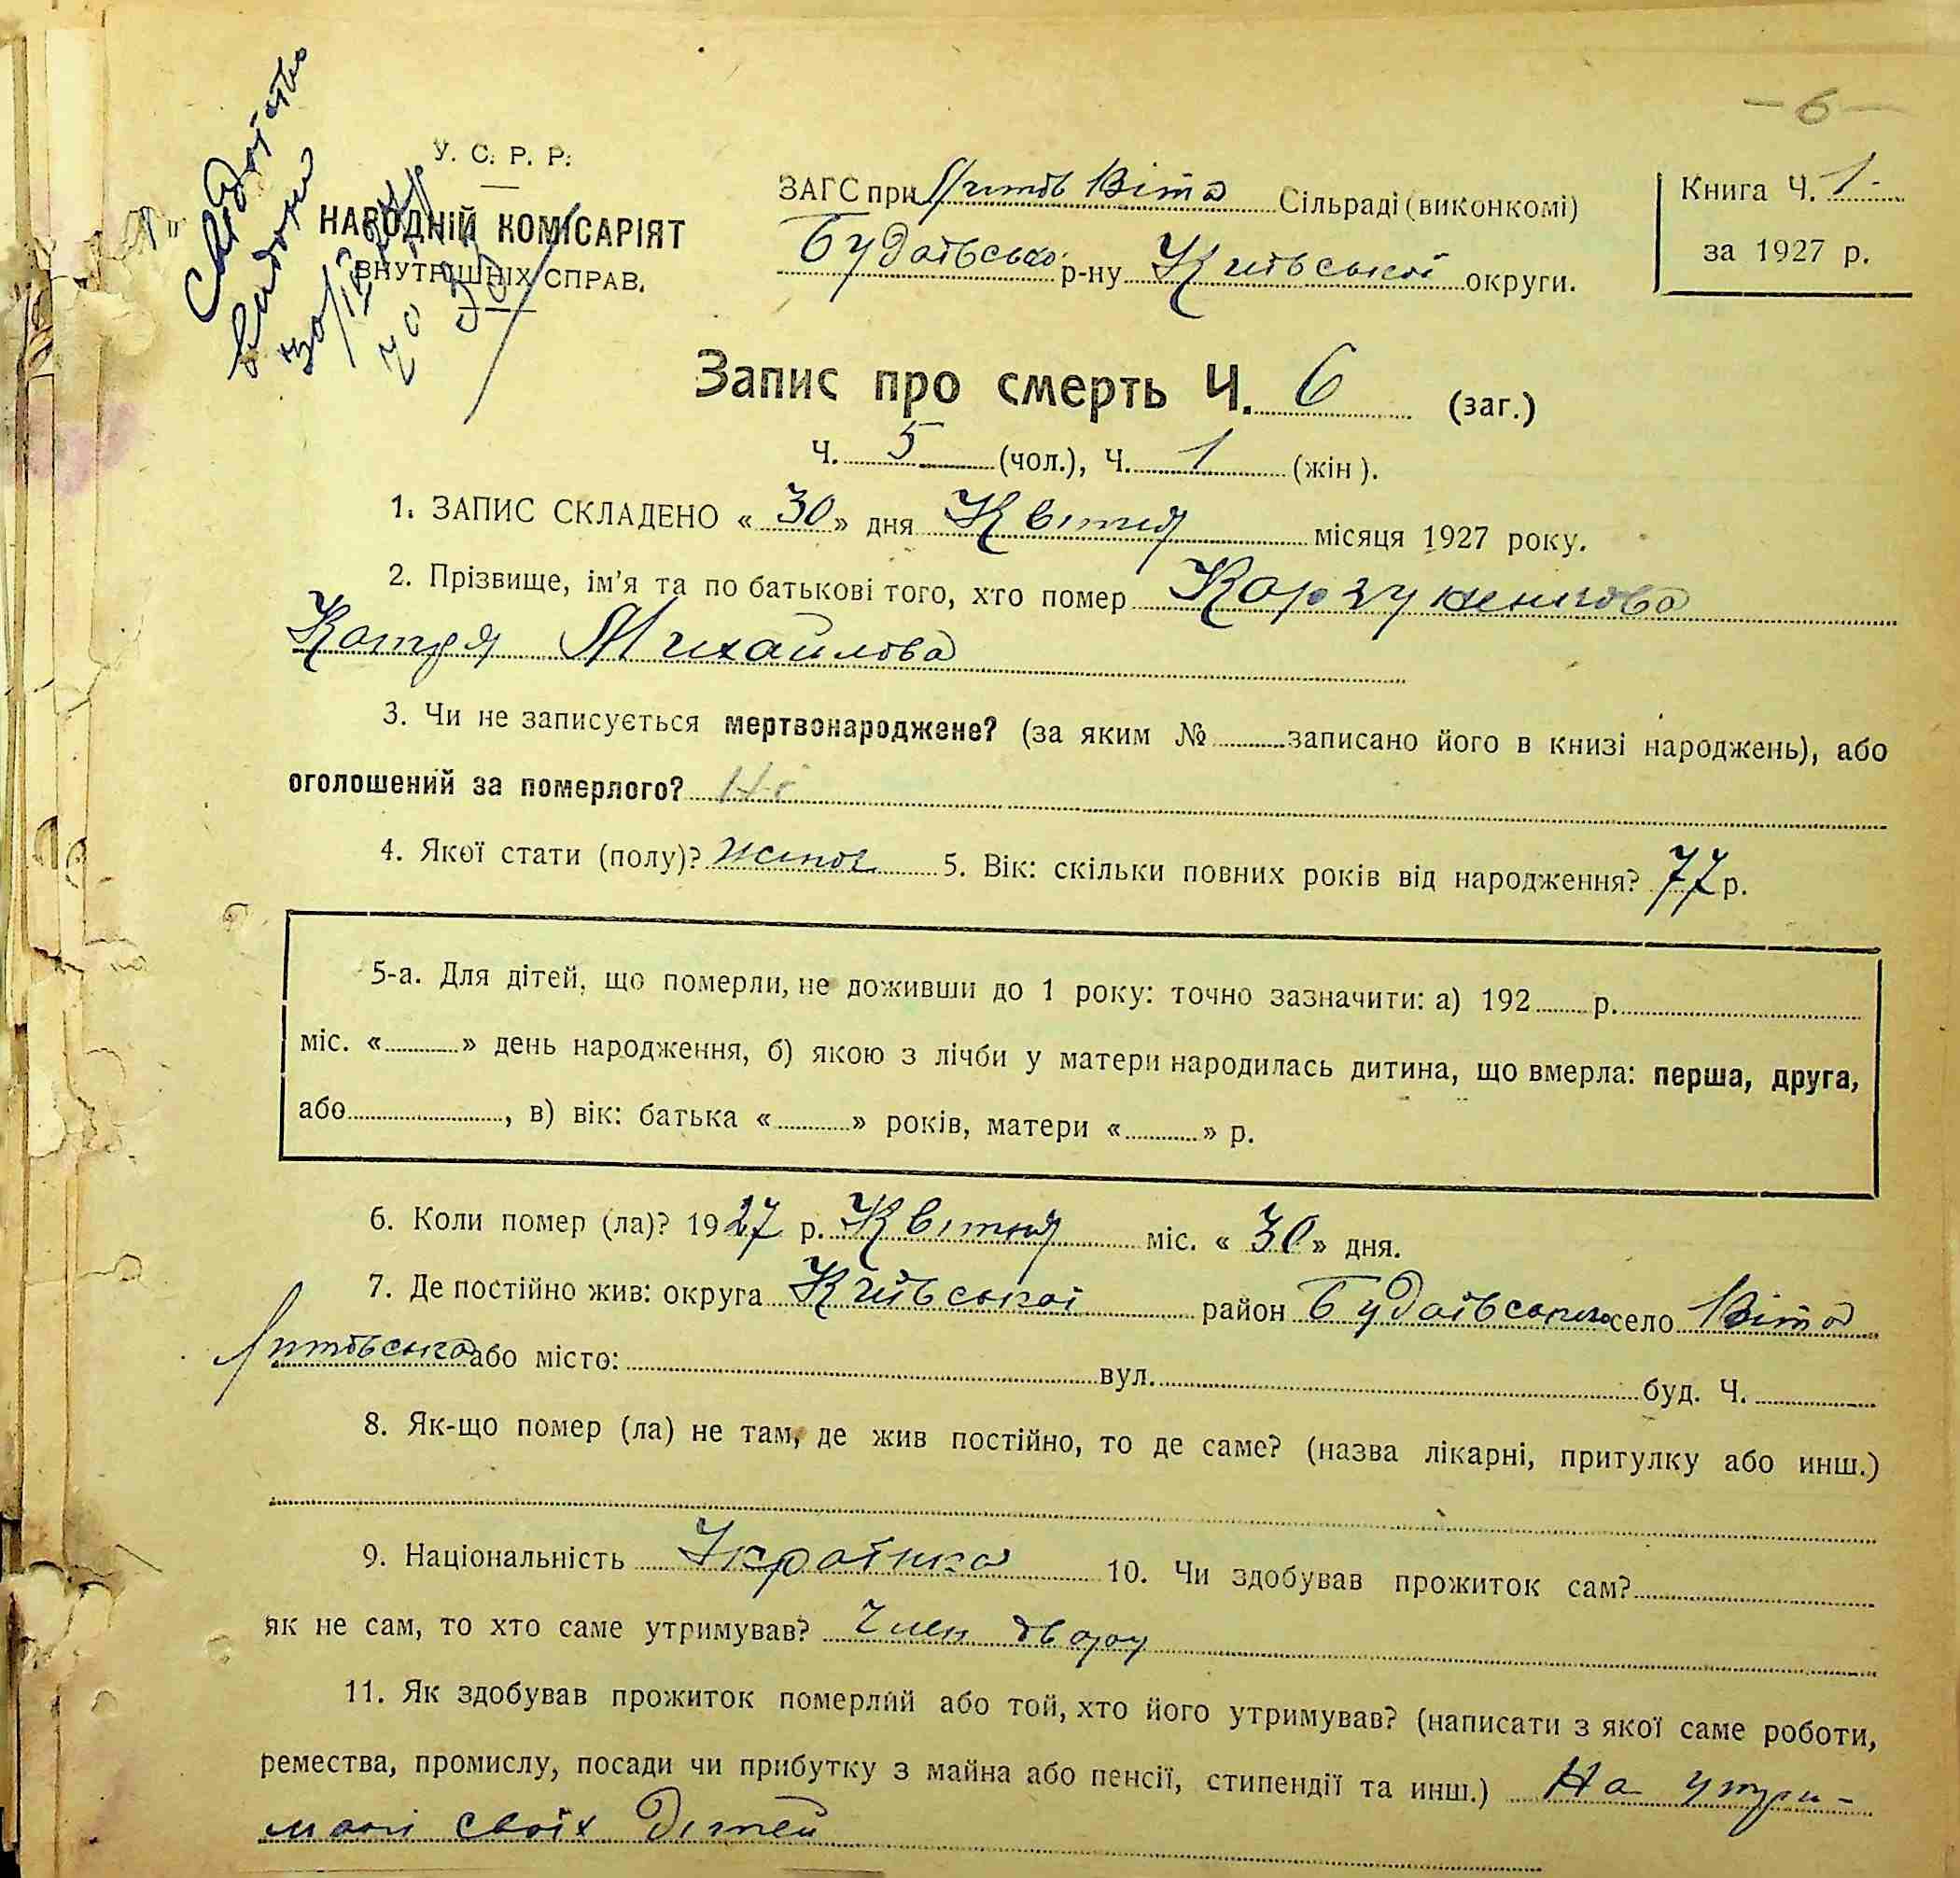 — 6 —
Свідоцтво
видани
30/IV
У. С. Р. Р.
НАРОДНІЙ КОМІСАРІЯТ
ВНУТРІШНІХ СПРАВ.
ЗАГС при Літов Віта Сільраді (виконкомі)
Будаївсько р-ну Київської округи.
Книга Ч. 1
за 1927 р.
Запис про смерть Ч. 6 (заг.)
Ч. 5 (чол.), Ч. 1 (жін).
1. ЗАПИС СКЛАДЕНО « 30 » дня Квітня місяця 1927 року.
2. Прізвище, ім'я та по батькові того, хто помер
Катря Михайлова
3. Чи не записується мертвонароджене? (за яким № записано його в книзі народжень), або
оголошений за померлого? Ні
4. Якої стати (полу)? жіноч. 5. Вік: скільки повних років від народження? 77 р.
5-а. Для дітей, що померли, не доживши до 1 року: точно зазначити: а) 192 р.
міс. « » день народження, б) якою з лічби у матери народилась дитина, що вмерла: перша, друга,
або , в) вік: батька « » років, матери « » р.
6. Коли помер (ла)? 1927 р. Квітня міс. « 30 » дня.
7. Де постійно жив: округа Київської район Будаївського село Віта
Литовська або місто: вул. буд. Ч.
8. Як-що помер (ла) не там, де жив постійно, то де саме? (назва лікарні, притулку або инш.)
9. Національність Українка 10. Чи здобував прожиток сам?
як не сам, то хто саме утримував? Член двору
11. Як здобував прожиток померлий або той, хто його утримував? (написати з якої саме роботи,
ремества, промислу, посади чи прибутку з майна або пенсії, стипендії та инш.) На утри-
мані своїх дітей